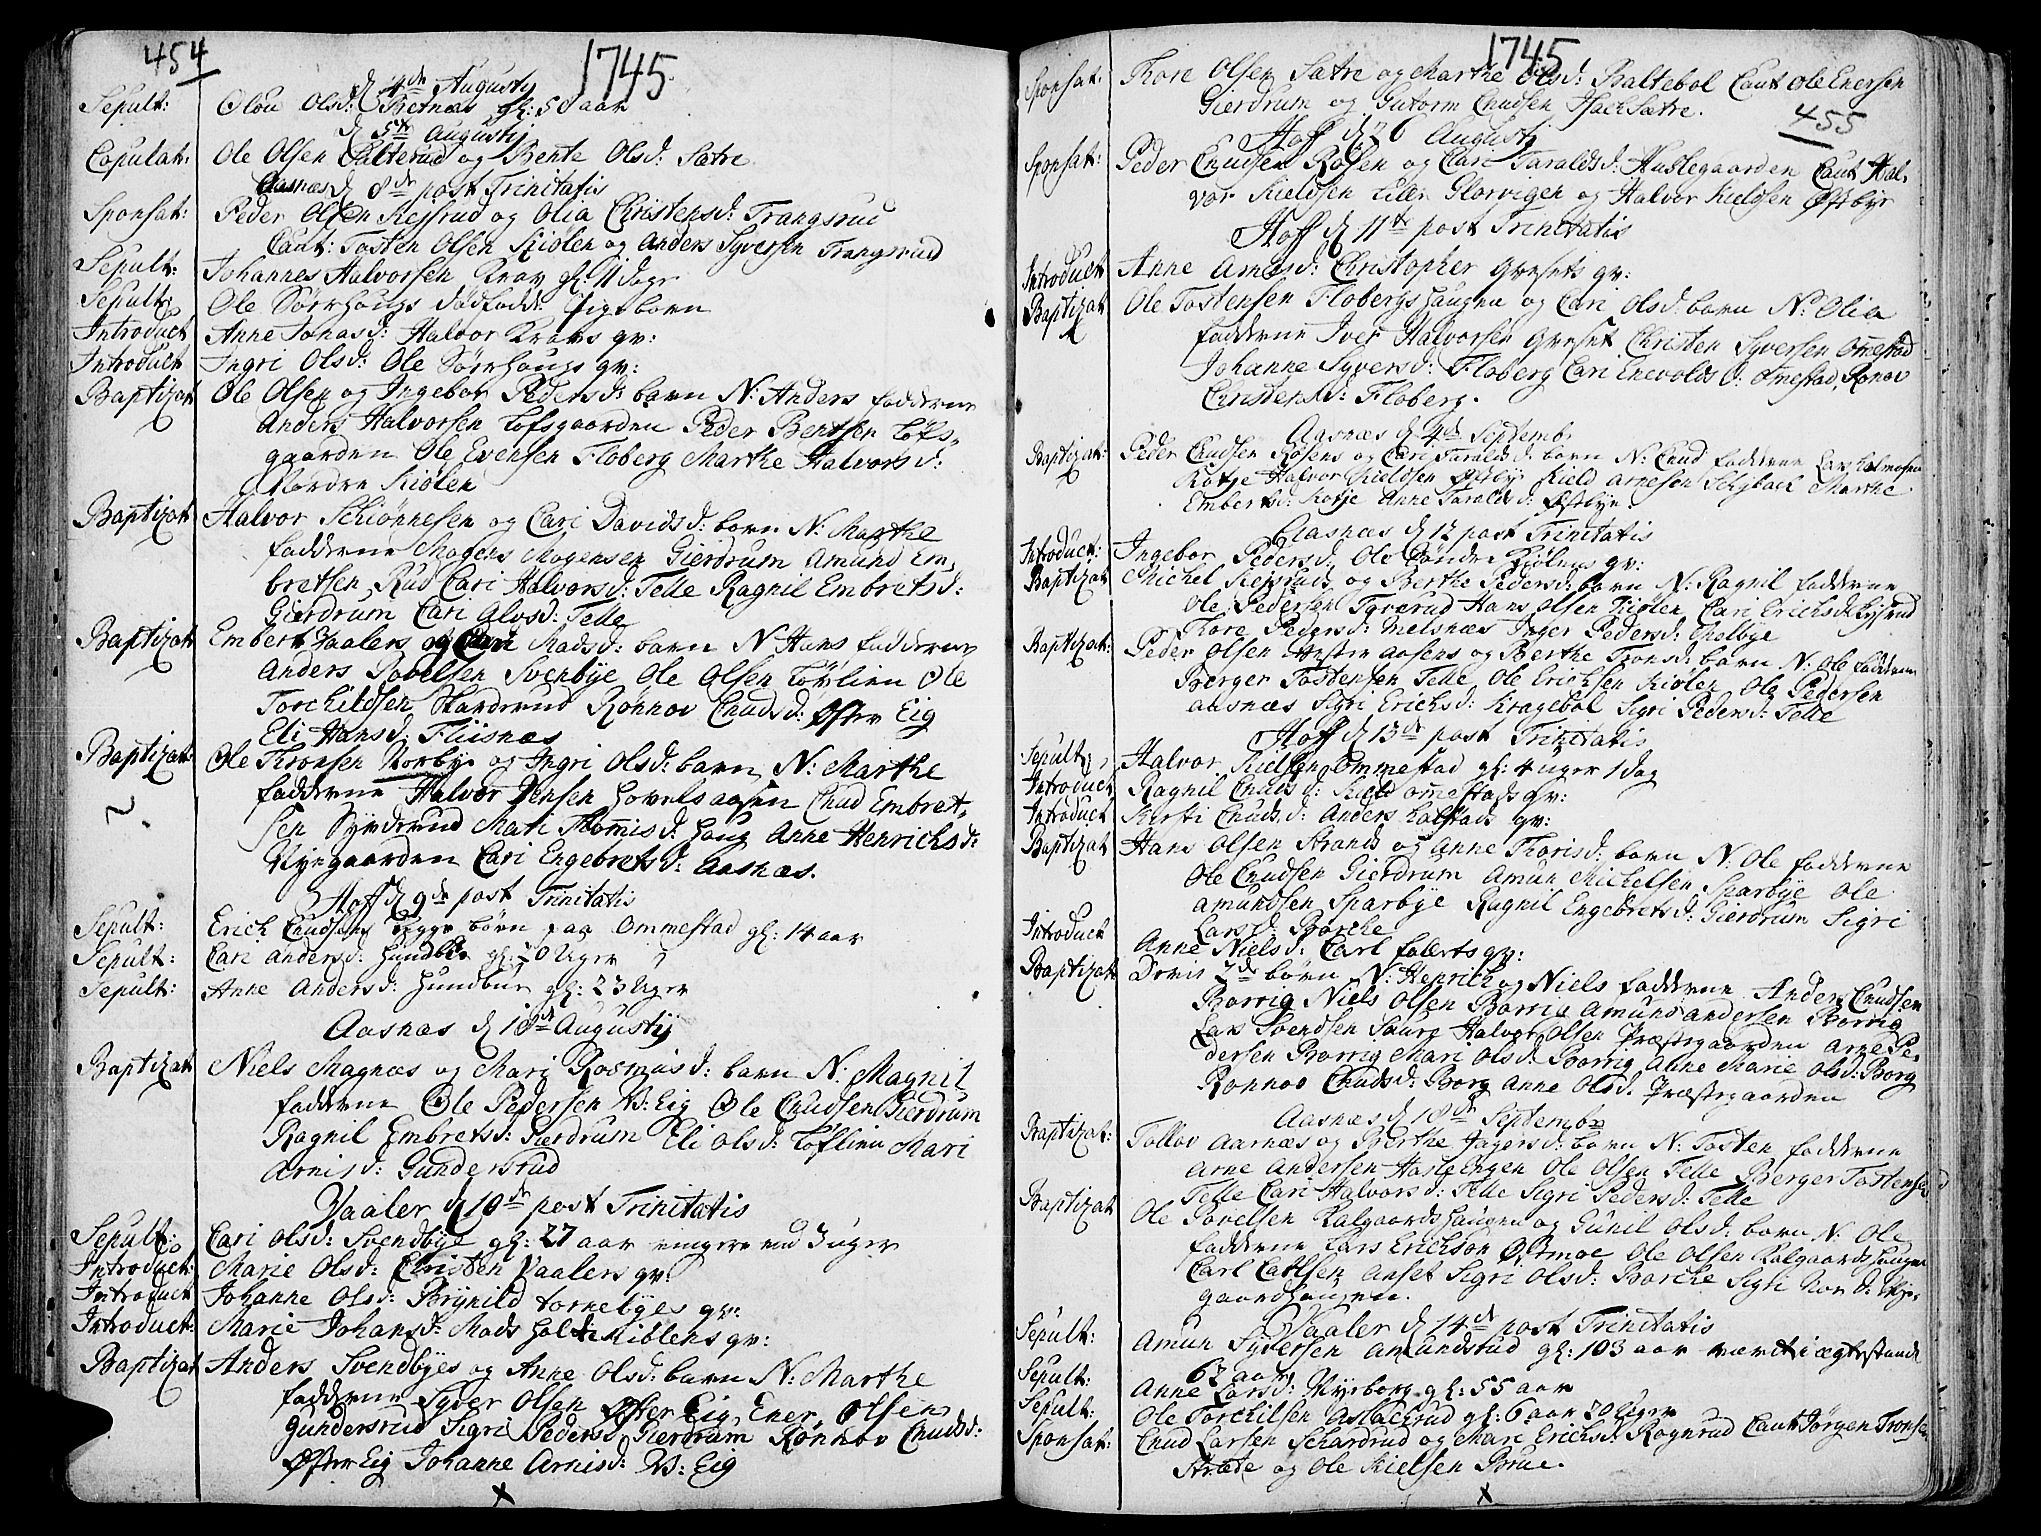 454
1745.
d 4de Augustj
Sepult: Olou Olsd: Betnæs gl: 50 aar
d 5te Augustij
Copulat: Ole Olsen Pulterud og Bente Olsd: Sætre
Aasnæs d 8de post Trinitatis
Sponsat: Peder Olsen Rejsrud og Olia Christensd: Trangsrud
Caut: Tosten Olsen Kiølen og Anders Syversen Trangsrud
Sepult: Johannes Halvorsen Krav gl: 11 dage
Sepult: Ole Sørhougs dødfødde Pigebarn
Introduct Anne Jonæd: Halvor Kravs qv:
Introduct Ingri Olsd: Ole Sørhougs qv:
Baptizat Ole Olsen og Ingebor Pedersd: barn N: Anders fadderne
Anders Halvorsen Løfsgaarden Peder Bentsen Løfs-
gaarden Ole Evensen Floberg Marthe Halvorsd:
Nordre Kiølen
Baptizat Halvor Schiønnesen og Cari Davidsd: barn N: Marthe
fadderne Mogens Mogensen Gierdrum Amund Em-
bretsen Rud Cari Halvorsd: Telle Ragnil Embretsd:
Gierdrum Cari Alvsd: Telle
Baptizat Embert Vaalers og Cari Madsd: barn N Hans fadderne
Anders Povelsen Svenbye Ole Olsen Løvlien Ole
Torchildsen Skarderud Rønnov Cnudsd: Øster Eig
Eli Hansd: Fliisnæs
Baptizat: Ole Thronsen Norbye og Ingri Olsd: barn N: Marthe
fadderne Halvor Jensen Hovelsaasen Cnud Embret-
sen Synderud Mari Thommisd: Houg Anne Henrichsd:
Nyegaarden Cari Engebretsd: Aasnæs.
Hoff d 9de post Trinitatis
Sepult: Erich Cnudsens barn paa Ommestad gl: 14 aar
Sepult: Cari Andersd: Hundbye gl: 20 Uger
Sepult: Anne Andersd: Hundbye gl: 23 Uger
Aasnæs d 18de Augustij
Baptizat Niels Magnæs og Mari Rasmusd: barn N: Magnil
fadderne Ole Pedersen V: Eig Ole Cnudsen Gierdrum
Ragnil Embretsd: Gierdrum Eli Olsd: Løflien Mari
Arnisd: Gundersrud
Vaaler d 10de post Trinitatis
Sepult: Cari Olsd: Svendbye gl: 27 aar 3 uger
Introduct: Marie Olsd: Christen Vaalers qv:
Introduct Johanne Olsd: Brynild Tornebyes qv:
Introduct: Marie Johansd: Mads Holt Kiølens qv:
Baptizat Anders Svendbyes og Anne Olsd: barn N: Marthe
fadderne Syver Olsen Øster Eig, Ener Olsen
Gundersrud Sigri Pedersd Gierdrum Rønnov Cnudsd:
Øster Eig Johanne Arnisd: V: Eig
x
1745
Sponsat: Thore Olsen Sætre og Marthe Olsd: Baltebøl Caut Ole Enersen
Gierdrum og Gutorm Cnudsen Sætre.
455
Hoff d 26 Augustj
Sponsat: Peder Cnudsen Rosen og Cari Taraldsd: Huslegaarden Caut Hal-
vor Kieldsen Glorvigen og Halvor Kieldsen Østbye
Hoff d 11te post Trinitatis
Introduct Anne Arnesd: Christopher Qvesets qv:
Baptizat Ole Tostensen Flobergshaugen og Cari Olsd: barn N: Olia
fadderne Iver Halvorsen Qveset Christen Syversen Omestad
Johanne Syversd: Floberg Cari Enevoldsd: Omestad, Rønov
Christensd: Floberg.
Aasnæs d 4de Septembr
Baptizat: Peder Cnudsen Rosens og Cari Taraldsd: barn N: Cnud fadderne Lars Holmesen
Rotje Halvor Kieldsen Østby Kield Arnesen Marthe
Embertsd: Rotje Anne Taraldsd: Østbye.
Aasnæs d 12 post Trinitatis
Introduct: Ingebor Pedersd: Ole Søndre Kiølens qv:
Baptizat Michel Rejsrud og Berthe Pedersd: barn N: Ragnil fadderne
Ole Pedersen Tyrirud Hans Olsen Kiølen Cari Erichsd Rejsrud
Thore Pedersd: Melsnæs Inger Pedersd: Opelbye
Baptizat: Peder Olsen Vester Aasens og Berthe Tronsd: barn N: Ole fadderne
Berger Tostensen Telle Ole Erichsen Kiølen Ole Pedersen
Aasnæs Sigri Erichsd: Kragebøl Sigri Pedersd: Telle
Hoff d 13de post Trinitatis
Sepult: Halvor Kielsen Ommestad gl: 4 uger 1 dag
Introduct Ragnil Cnudsd: Kield Ommestads qv:
Introduct Kirsti Cnudsd: Anders Kolstads qv:
Baptizat Hans Olsen Strands og Anne Thorisd: barn N: Ole fadderne
Ole Cnudsen Gierdrum Amun Michelsen Sparbye Ole
Amundsen Sparbye Ragnil Engebretsd: Gierdrum Sigri
Larsd: Borche
Introduct Anne Nielsd: Carl Folerts qv:
Baptizat Deris 2de børn N: Henrich og Niels fadderne Anders Cnudsen
Borrig Niels Olsen Borrig Amund Andersen Borrig
Lars Svendsen Saure Halvor Olsen Præstegaarden Arne Pe-
dersen Borrig Mari Olsd: Borrig Anne Marie Olsd: Borg
Rønnov Cnudsd: Borg Anne Olsd. Præstegaarden
Aasnæs d 18de Septembr
Baptizat: Tollov Aarnæs og Berthe Jagersd: barn N: Tosten fadderne
Arne Andersen Hasle Engen Ole Olsen Telle Berger Tostensen
Telle Cari Halvorsd: Telle Sigri Pedersd: Telle
Baptizat Ole Povelsen Kalgaardshaugen og Gunil Olsd: barn N: Ole
fadderne Lars Erichsen Østmoe Ole Olsen Kalgaardshaugen
Carl Carlsen Anset Sigri Olsd: Borche Sigri Nye-
gaardhaugen.
Vaaler d 14de post Trinitatis
Sepult: Amun Syversen Amundsrud gl: 103 aar været i ægtestande
62 aar
Sepult: Anne Larsd: Nyeborg gl: 55 aar
Sepult: Ole Torchilsen Aslachrud gl: 6 aar 20 Uger
Sponsat: Cnud Larsen Schardrud og Mari Erichsd: Rognrud Caut Jørgen Tronsen
Strætte og Ole Kielsen Brue.
x